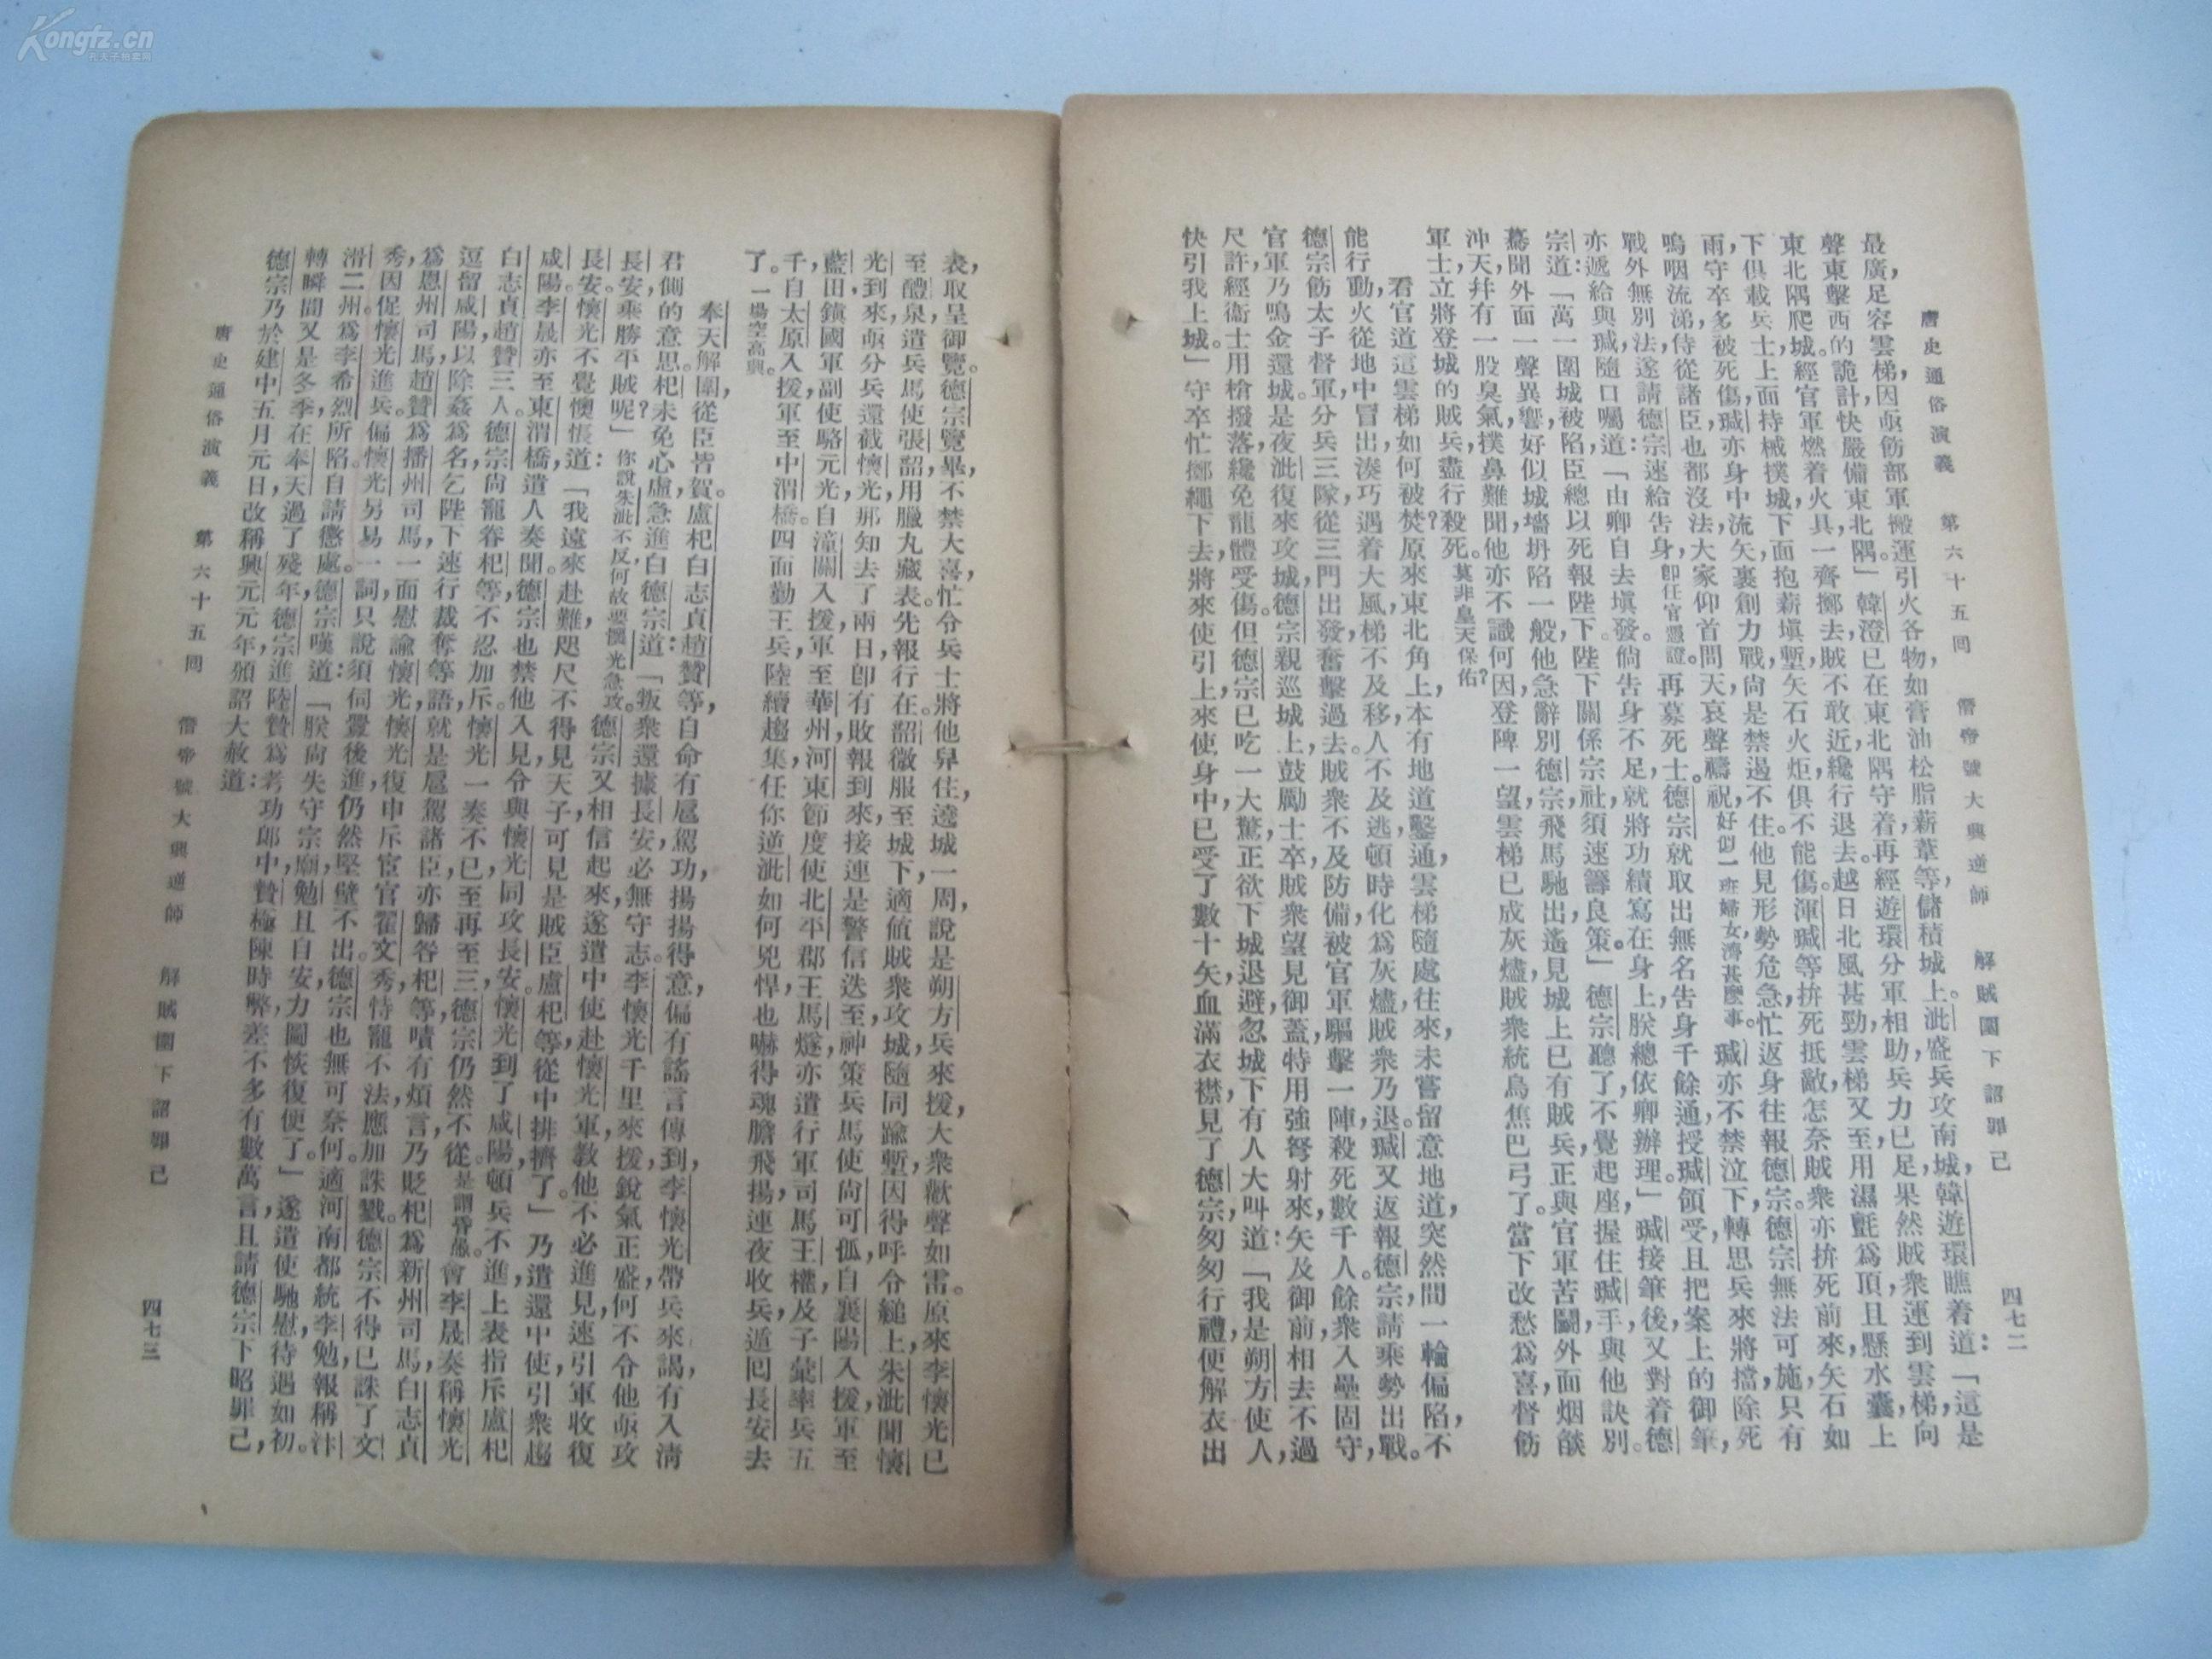 Kongfz.cn
唐史通俗演義　第六十五回　僭帝號大興逆師　解賊圍下詔罪己　四七二
最廣，足容雲梯，因亟飭部軍搬運引火各物，如膏油松脂薪葦等，儲積城上。泚盛兵攻南城，韓遊環瞧着道：「這是
聲東擊西的詭計，快嚴備東北隅。」韓澄已在東北隅守着，再經遊環分軍相助，兵力已足，果然賊衆運到雲梯，向
東北隅爬城。經官軍燃着火具，一齊擲去，賊不敢近，纔行退去。越日北風甚勁，雲梯又至，用濕氈爲頂，且懸水囊，上
下俱載兵士，上面持械撲城，下面抱薪塡塹，矢石火炬，俱不能傷。渾瑊等拚死抵敵，怎奈賊衆亦拚死前來，矢石如
雨，守卒多被死傷，瑊亦身中流矢，裹創力戰，尙是禁遏不住。他見形勢危急，忙返身往報德宗。德宗無法可施，只有
嗚咽流涕，侍從諸臣，也都沒法，大家仰首問天，哀聲禱祝，好似一班婦女，濟甚麽事。瑊亦不禁泣下，轉思兵來將擋，除死
戰外無別法，遂請德宗速給告身，卽任官憑證。再募死士。德宗就取出無名告身千餘通，授瑊領受，且把案上的御筆，
亦遞給與瑊，隨口囑道：「由卿自去塡發。倘告身不足，就將功績寫在身上，朕總依卿辦理。」瑊接筆後，又對着德
宗道：「萬一圍城被陷，臣總以死報陛下。陛下關係宗社，須速籌良策。」德宗聽了，不覺起座，握住瑊手，與他訣別。
驀聞外面一聲異響，好似城墻坍陷一般，他急辭別德宗，飛馬馳出，遙見城上已有賊兵，正與官軍苦鬭，外面烟燄
沖天，幷有一股臭氣，撲鼻難聞，他亦不識何因，登陴一望，雲梯已成灰燼，賊衆統烏焦巴弓了。當下改愁爲喜，督飭
軍士，立將登城的賊兵，盡行殺死。莫非皇天保佑？
看官道這雲梯如何被焚？原來東北角上，本有地道鑿通，雲梯隨處往來，未嘗留意地道，突然間一輪偏陷，不
能行動，火從地中冒出，湊巧遇着大風，梯不及移，人不及逃，頓時化爲灰燼，賊衆乃退。瑊又返報德宗，請乘勢出戰。
德宗飭太子督軍，分兵三隊，從三門出發，奮擊過去。賊衆不及防備，被官軍驅擊一陣，殺死數千人。餘衆入壘固守，
官軍乃鳴金還城。是夜泚復來攻城，德宗親巡城上，鼓勵士卒，賊衆望見御蓋，特用強弩射來，矢及御前，相去不過
尺許，經衞士用槍撥落，纔免龍體受傷。但德宗已吃一大驚，正欲下城退避，忽城下有人大叫道：「我是朔方使人，
快引我上城。」守卒忙擲繩下去，將來使引上，來使身中，已受了數十矢，血滿衣襟，見了德宗，匆匆行禮，便解衣出
表，取呈御覽。德宗覽畢，不禁大喜，忙令兵士將他舁住，遶城一周，說是朔方兵來援，大衆歡聲如雷。原來李懷光已
至醴泉，遣兵馬使張韶，用臘丸藏表，先報行在。韶微服至城下，適値賊衆攻城，隨同踰塹，因得呼令縋上。朱泚聞懷
光到來，亟分兵還截懷光，那知去了兩日，卽有敗報到來，接連是警信迭至，神策兵馬使尙可孤，自襄陽入援，軍至
藍田，鎭國軍副使駱元光，自潼關入援，軍至華州，河東節度使北平郡王馬燧，亦遣行軍司馬王權，及子彙率兵五
千，自太原入援，軍至中渭橋。四面勤王兵，陸續趨集，任你逆泚如何兇悍，也嚇得魂膽飛揚，連夜收兵，遁回長安去
了。一場空高興。
奉天解圍，從臣皆賀。盧杞白志貞趙贊等，自命有扈駕功，揚揚得意，偏有謠言傳到，李懷光帶兵來謁，有入淸
君側的意思。杞未免心虛，急進白德宗道：「叛衆還據長安，必無守志。李懷光千里來援，銳氣正盛，何不令他亟攻
長安，乘勝平賊呢？」你說朱泚不反，何故要懷光急攻。德宗又相信起來，遂遣中使赴懷光軍，敎他不必進見，速引軍收復
長安。懷光不覺懊悵道：「我遠來赴難，咫尺不得見天子，可見是賊臣盧杞等，從中排擠了。」乃遣還中使，引衆趨
咸陽，李晟亦至東渭橋，遣人奏聞。德宗也禁他入見，令與懷光同攻長安。懷光到了咸陽，頓兵不進，上表指斥盧杞
白志貞趙贊三人。德宗尙寵眷杞等，不忍加斥。懷光一奏不已，至再至三，德宗仍然不從。是謂昏愚。會李晟奏稱懷光
逗留咸陽，以除姦爲名，乞陛下速行裁奪等語，就是扈駕諸臣，亦歸咎杞等，嘖有煩言，乃貶杞爲新州司馬，白志貞
爲恩州司馬，趙贊爲播州司馬，一面慰諭懷光，懷光復申斥宦官翟文秀，恃寵不法，應加誅戮。德宗不得已誅了文
秀，因促懷光進兵。偏懷光另易一詞，只說須伺釁後進，仍然堅壁不出。德宗也無可奈何。適河南都統李勉，報稱汴
滑二州，爲李希烈所陷，自請懲處。德宗嘆道：「朕尙失守宗廟，勉且自安，力圖恢復便了。」遂遣使馳慰，待遇如初。
轉瞬間又是冬季，在奉天過了殘年，德宗進陸贄爲考功郞中，贄極陳時弊，差不多有數萬言，且請德宗下昭罪己，
德宗乃於建中五月元日，改稱興元元年，頒詔大赦道：
唐史通俗演義　第六十五回　僭帝號大興逆師　解賊圍下詔罪己　四七三